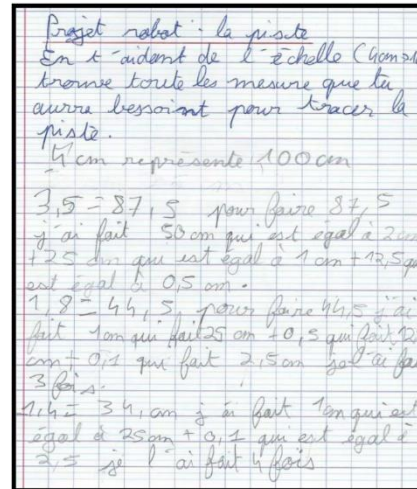 Projet robot : la piste
En t'aidant de l'échelle (4cm=1
trouve toute les mesure que tu
aurra bessoint pour tracer la
piste.
4 cm représente 100 cm
3,5 = 87,5 pour faire 87,5
j'ai fait 50 cm qui est égal à 2cm
+25 cm qui est égal à 1 cm + 12,5 qu
est égal à 0,5 cm.
1,8 = 44,5, pour faire 44,5 j'ai
fait 1cm qui fait 25 cm + 0,5 qui fait 12
cm + 0,1 qui fait 2,5cm je l'ai fa
3 fois.
1,4 = 34, cm j'ai fait 1cm qui est
égal à 25cm + 0,1 qui est égal à
2,5 je l'ai fait 4 fois